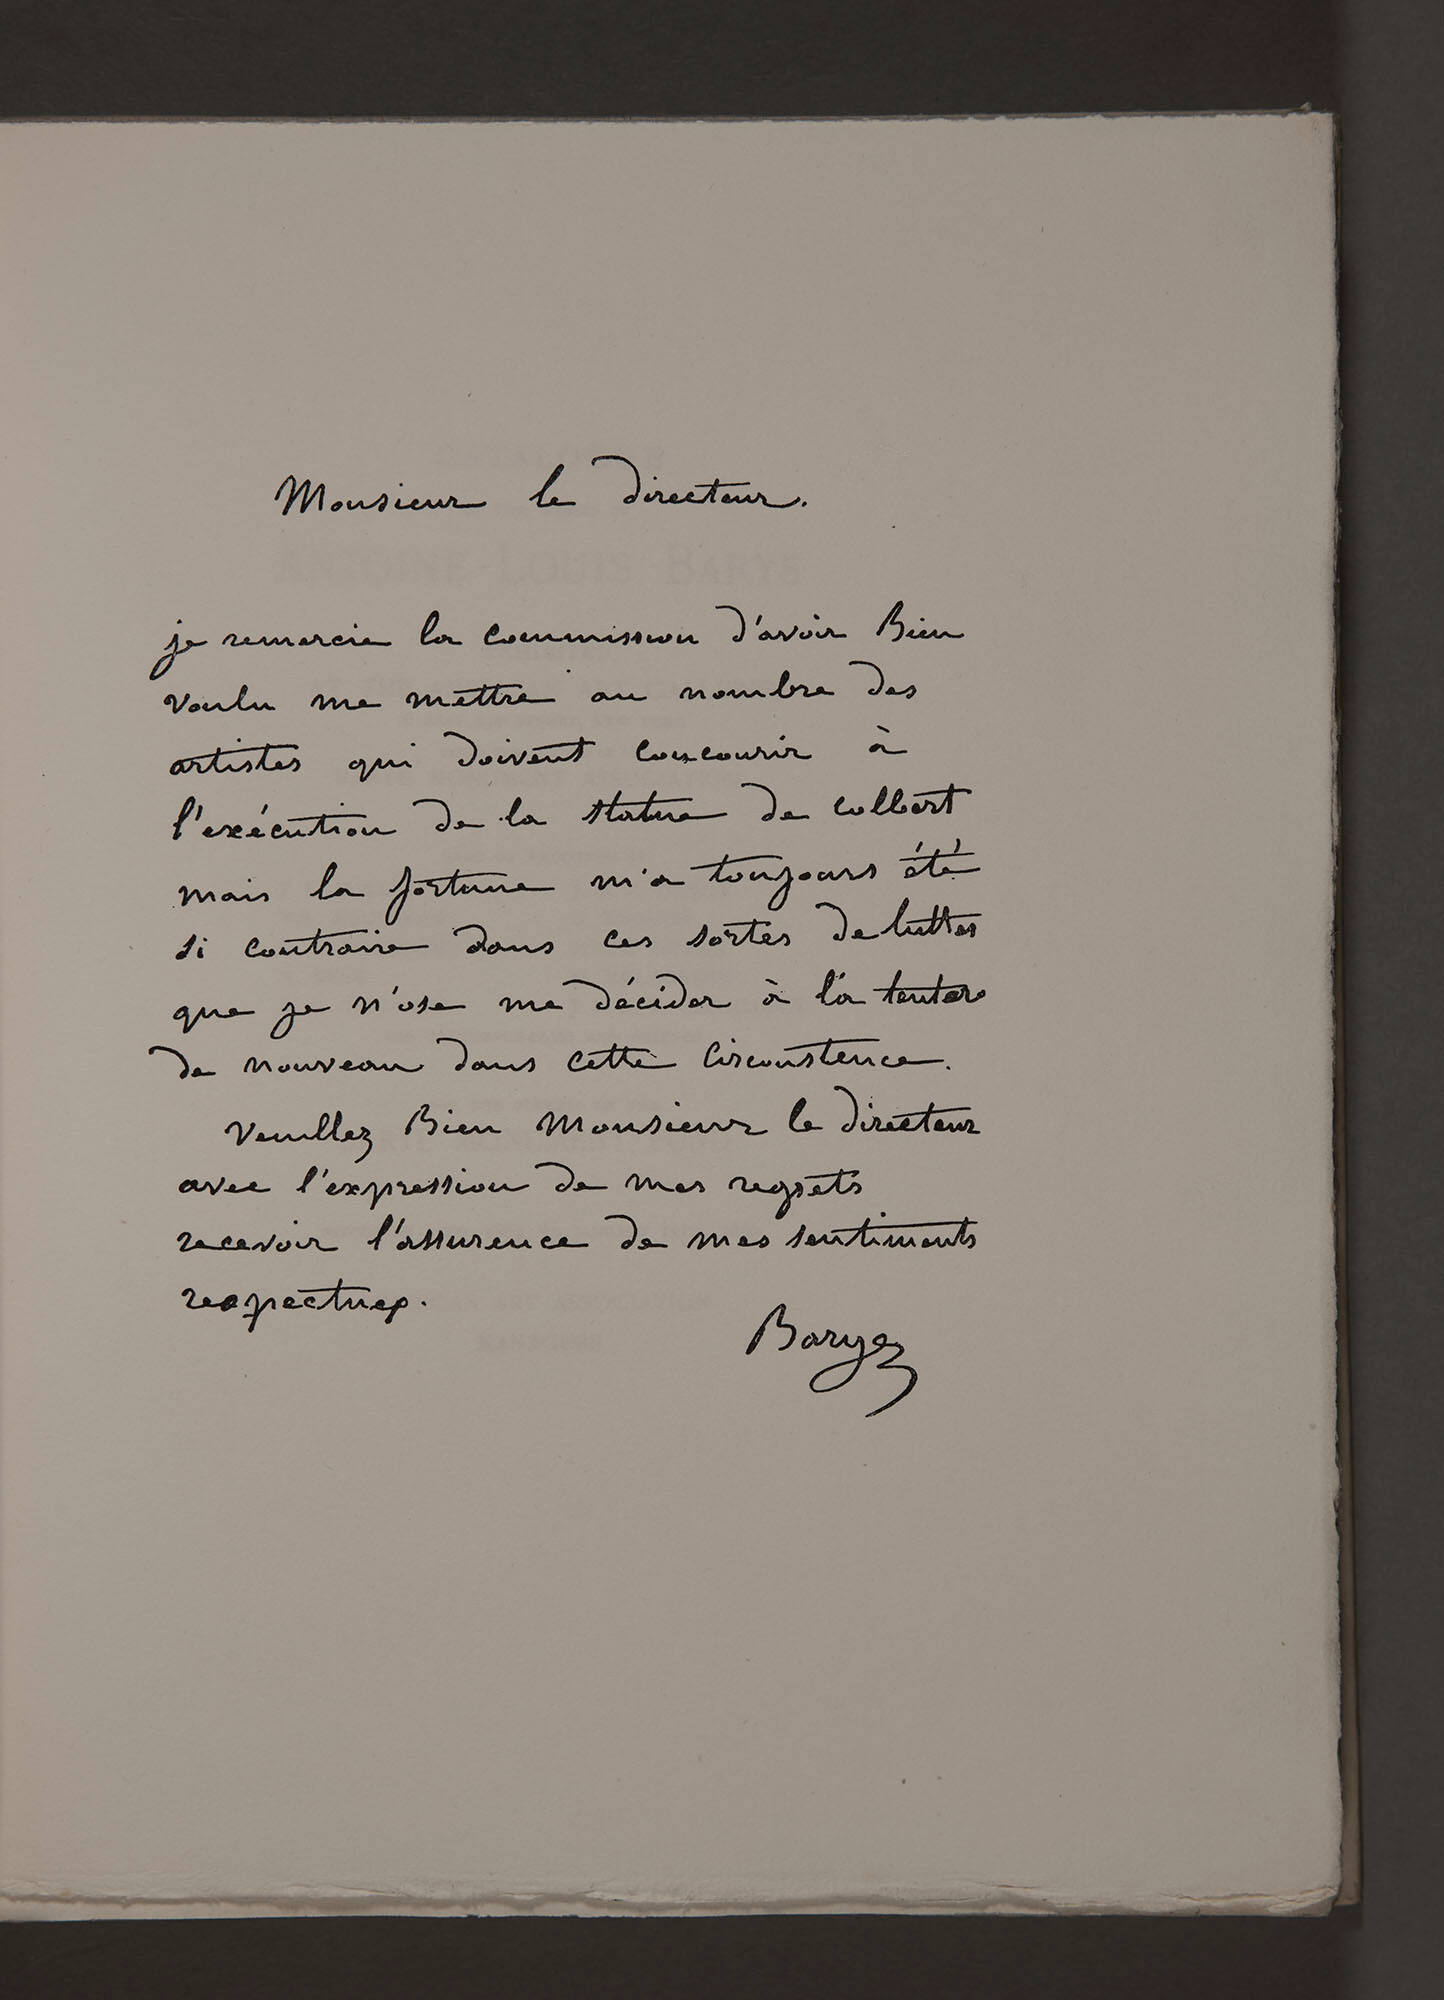 Monsieur le directeur.
je remercie la commission d'avoir Bien
voulu me mettre au nombre des
artistes qui doivent concourir à
l'exécution de la statue de colbert
mais la fortune m'a toujours été
si contraire dans ces sortes de luttes
que je n'ose me décider à la tenter
de nouveau dans cette circonstence.
veuillez Bien Monsieur le directeur
avec l'expression de mes regrets
recevoir l'assurence de mes sentiments
respectuex.
Barye
ANTOINE-LOUIS BARYE